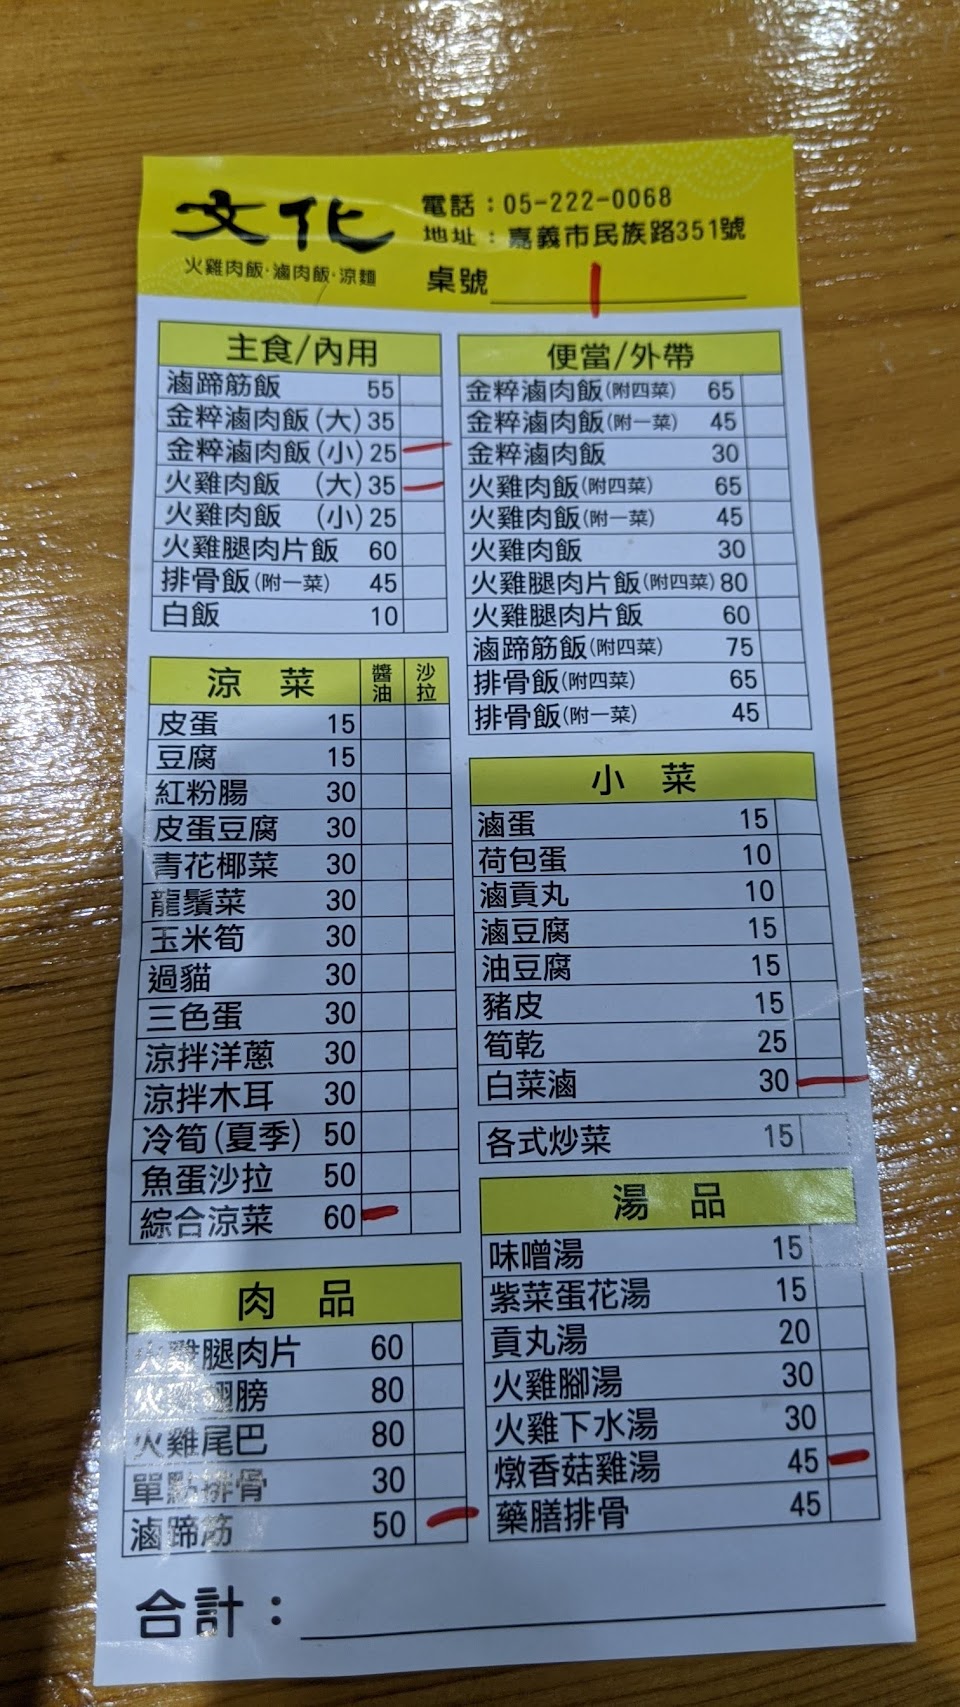 文化
火雞肉飯·滷肉飯·涼麵
電話：05-222-0068
地址：嘉義市民族路351號
桌號 1
主食/內用
滷蹄筋飯 55
金粹滷肉飯(大) 35
金粹滷肉飯(小) 25
火雞肉飯 (大) 35
火雞肉飯 (小) 25
火雞腿肉片飯 60
排骨飯(附一菜) 45
白飯 10
涼菜 醬油 沙拉
皮蛋 15
豆腐 15
紅粉腸 30
皮蛋豆腐 30
青花椰菜 30
龍鬚菜 30
玉米筍 30
過貓 30
三色蛋 30
涼拌洋蔥 30
涼拌木耳 30
冷筍(夏季) 50
魚蛋沙拉 50
綜合涼菜 60
肉品
火雞腿肉片 60
火雞翅膀 80
火雞尾巴 80
單點排骨 30
滷蹄筋 50
便當/外帶
金粹滷肉飯(附四菜) 65
金粹滷肉飯(附一菜) 45
金粹滷肉飯 30
火雞肉飯(附四菜) 65
火雞肉飯(附一菜) 45
火雞肉飯 30
火雞腿肉片飯(附四菜) 80
火雞腿肉片飯 60
滷蹄筋飯(附四菜) 75
排骨飯(附四菜) 65
排骨飯(附一菜) 45
小菜
滷蛋 15
荷包蛋 10
滷貢丸 10
滷豆腐 15
油豆腐 15
豬皮 15
筍乾 25
白菜滷 30
各式炒菜 15
湯品
味噌湯 15
紫菜蛋花湯 15
貢丸湯 20
火雞腳湯 30
火雞下水湯 30
燉香菇雞湯 45
藥膳排骨 45
合計：